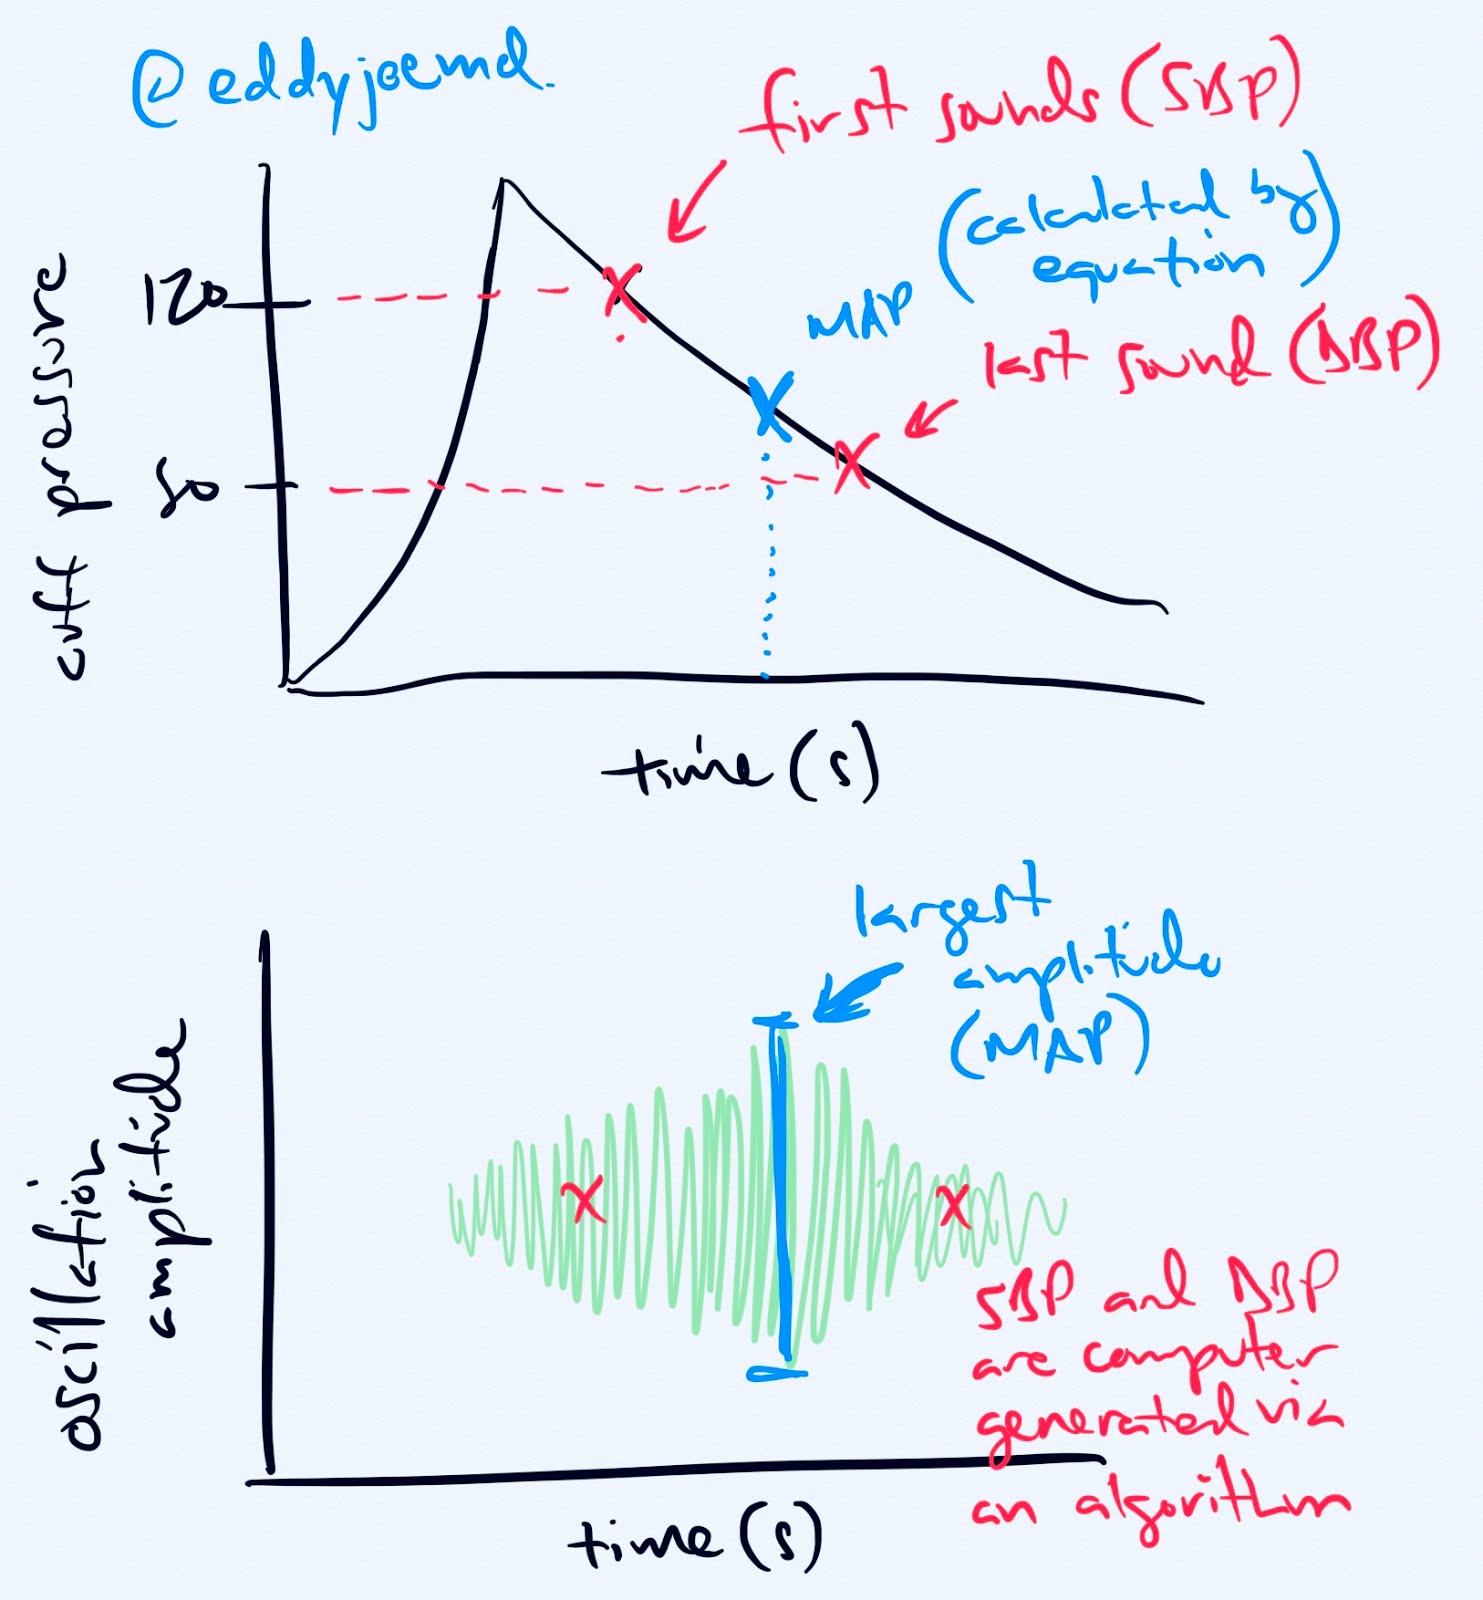 @eddyjoemd.
first sounds (SBP)
MAP (calculated by
equation)
last sound (DBP)
120
80
cuff pressure
time (s)
largest
amplitude
(MAP)
oscillation
amplitude
SBP and DBP
are computer
generated via
an algorithm
time (s)